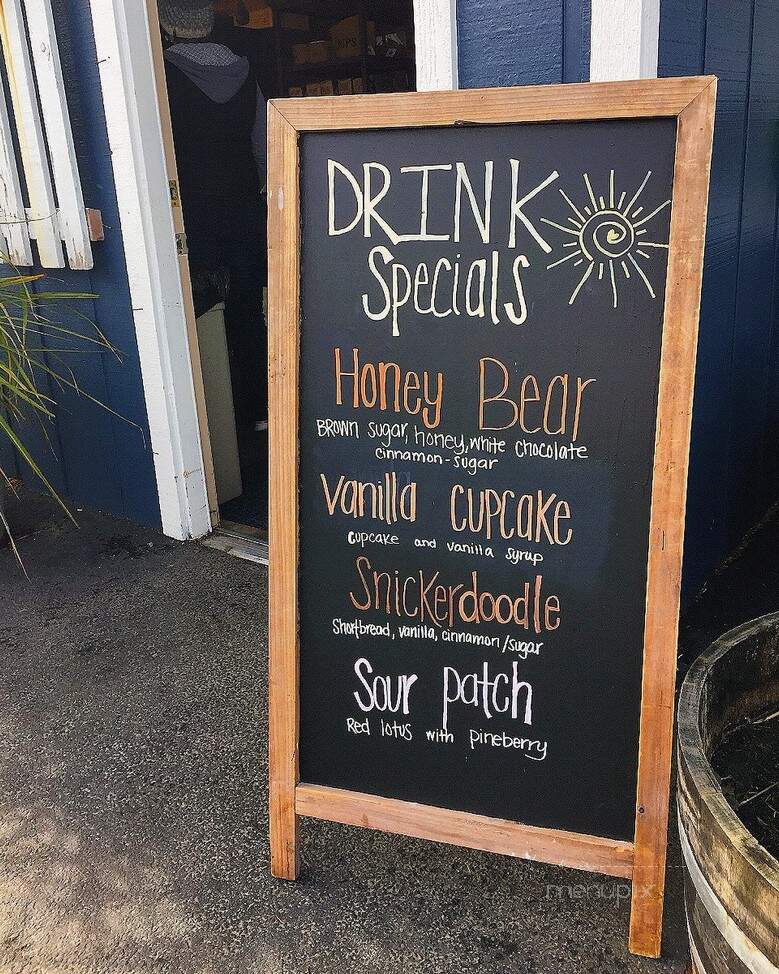 DRINK
Specials
Honey Bear
Brown sugar, honey, white chocolate
cinnamon-sugar
vanilla cupcake
cupcake and vanilla syrup
Snickerdoodle
Shortbread, vanilla, cinnamon/sugar
Sour patch
Red lotus with pineberry
menupix